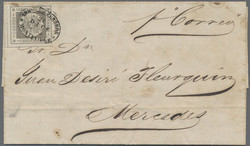 p. Correo
Sr. Dn.
Juan Desiré Fleurquin
Mercedes